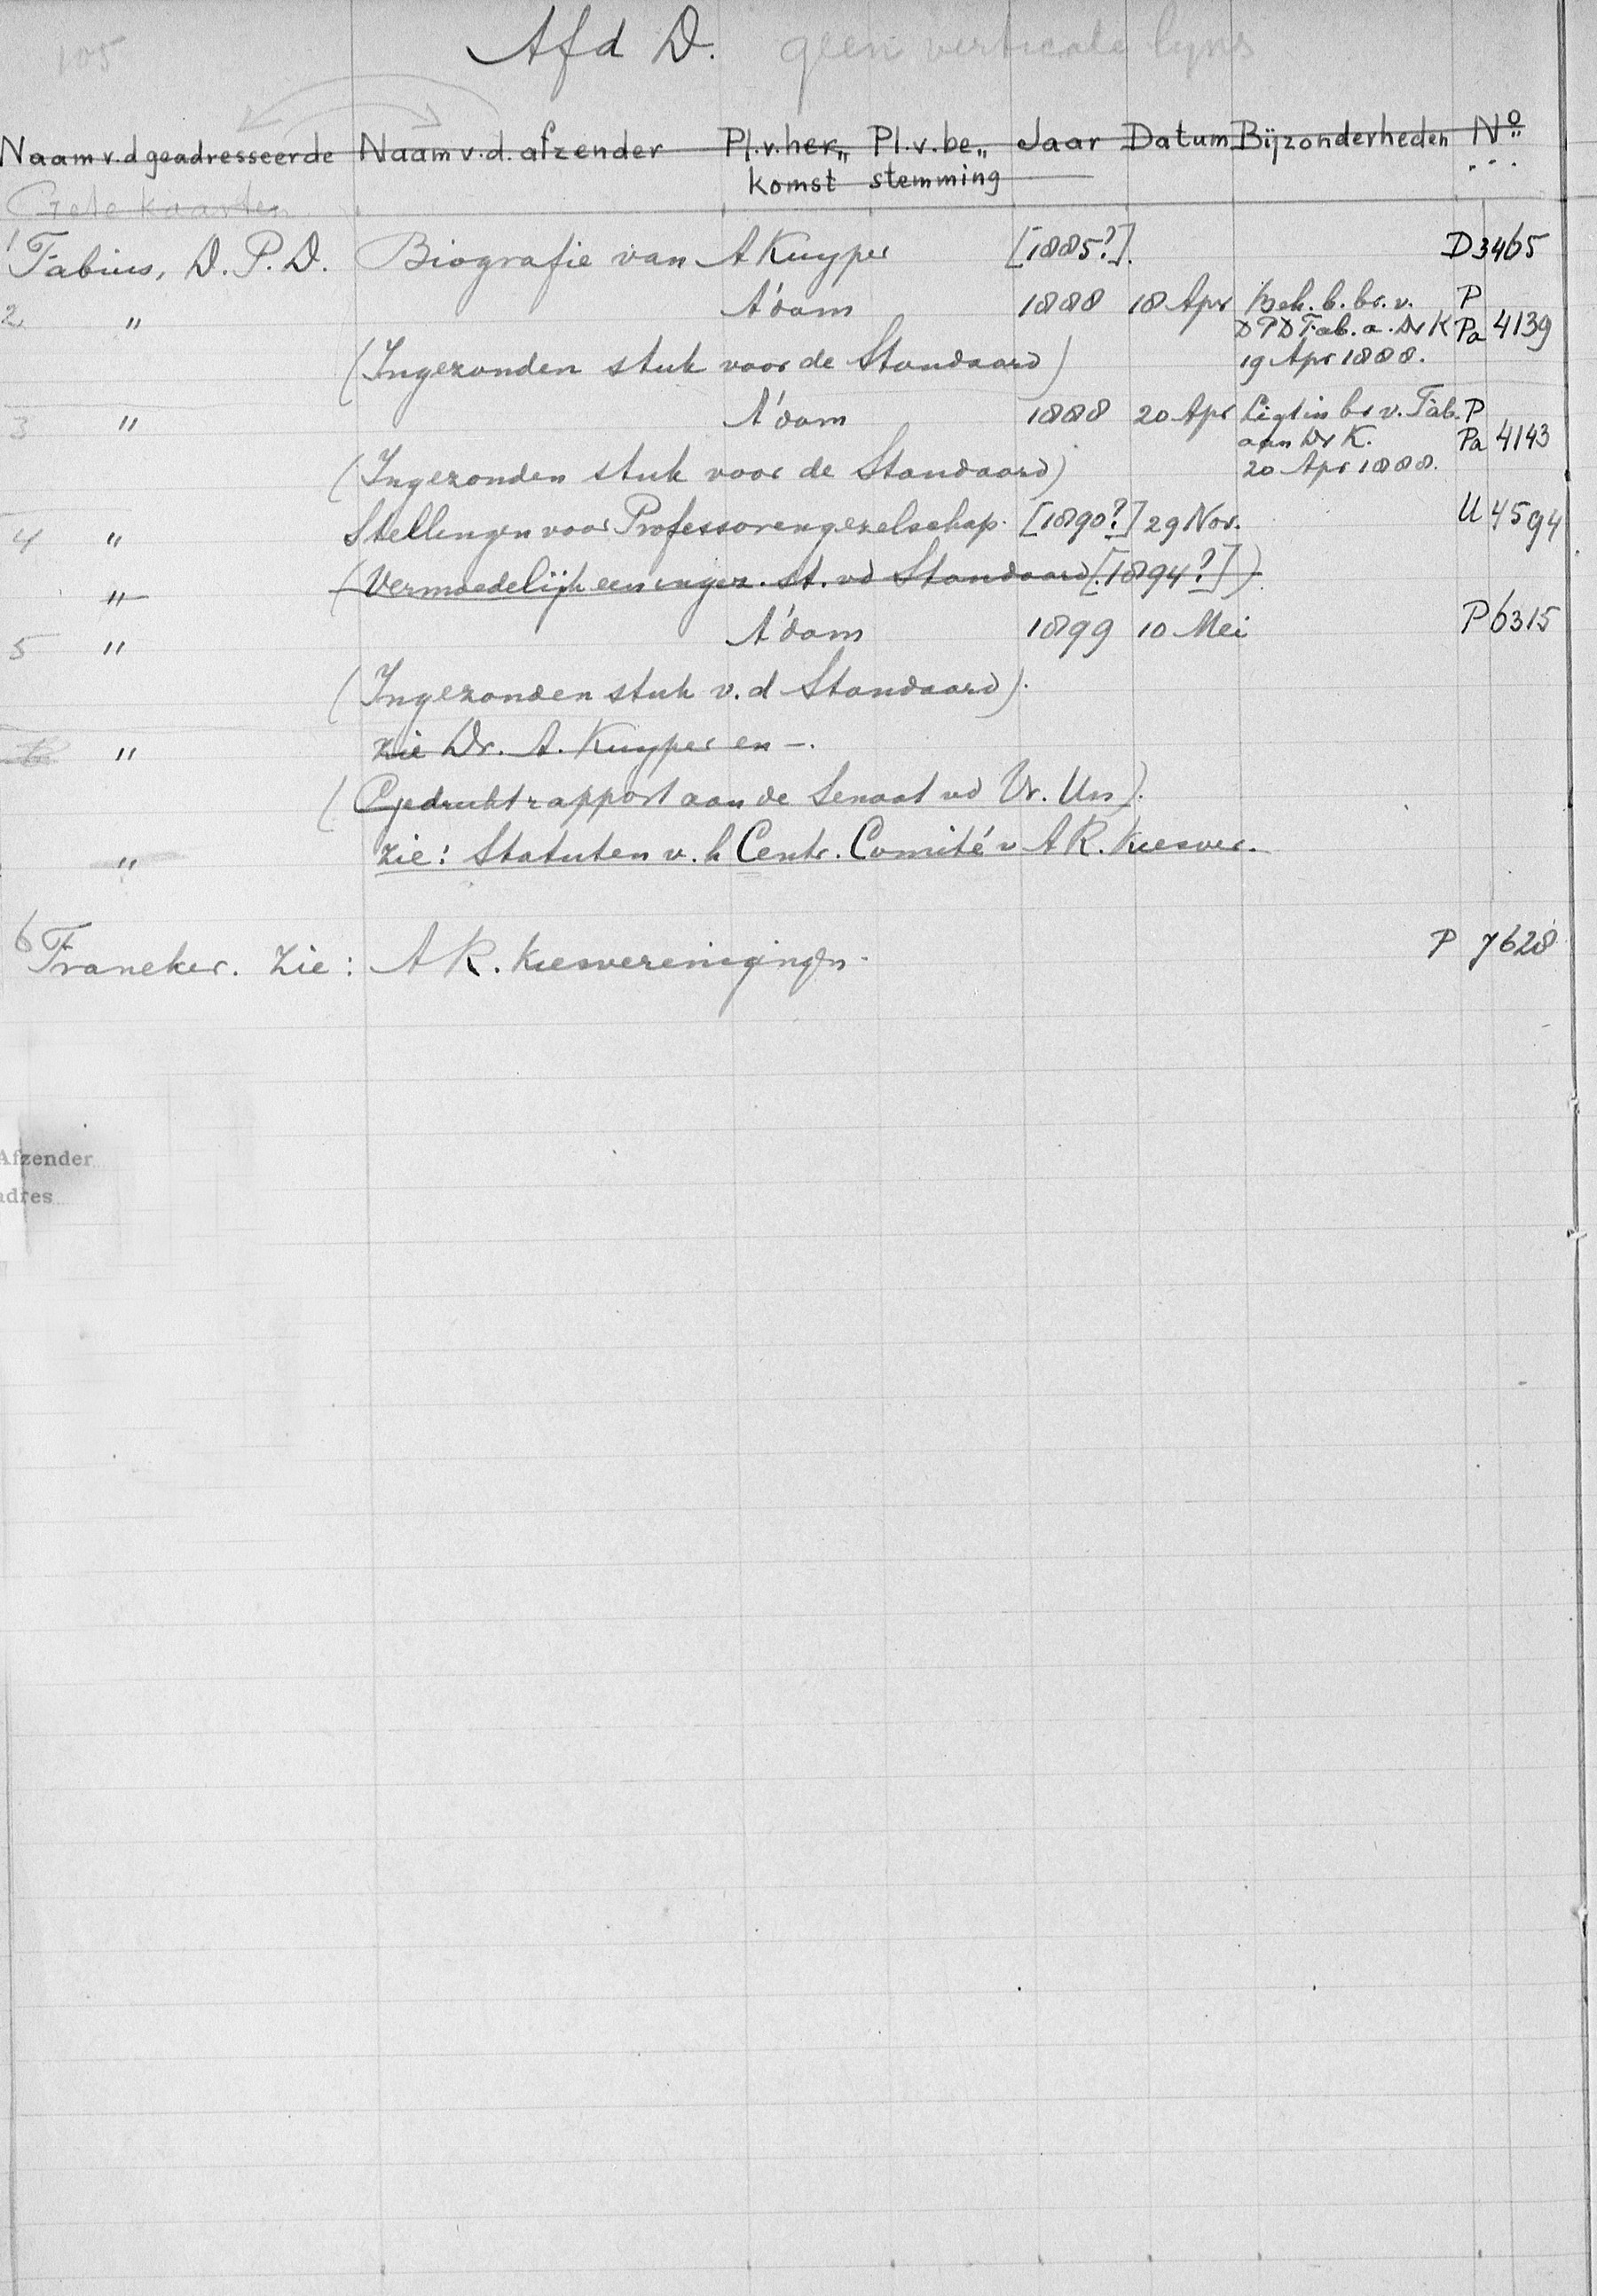 105 Afd D. geen verticale lyns
Naam v.d geadresseerde Naam v.d. afzender Pl.v.her„ Pl.v.be„ Jaar Datum Bijzonderheden No
komst stemming
Gele kaarten
1 Fabius, D. P. D. Biografie van A Kuyper [1885?]. D 3465
2 " A'dam 1888 18 Apr Beh. b. br. v. P
D P D Fab. a. Dr K Pa 4139
(Ingezonden stuk voor de Standaard) 19 Apr 1888.
3 " A'dam 1888 20 Apr Ligt in br v. Fab. P
aan Dr K. Pa 4143
(Ingezonden stuk voor de Standaard) 20 Apr 1888.
4 " Stellingen voor Professorengezelschap. [1890?] 29 Nov. U 4594
" (Vermoedelijk een ingez. st. vd Standaard [1894?])
5 " A'dam 1899 10 Mei P 6315
(Ingezonden stuk v. d Standaard).
" zie Dr. A. Kuyper en –.
(Gedrukt rapport aan de Senaat vd Vr. Un).
" zie: Statuten v. h Centr. Comité v A R. Kiesver.
6 Franeker. Zie: A R. Kiesverenigingen. P 7628
Afzender
adres